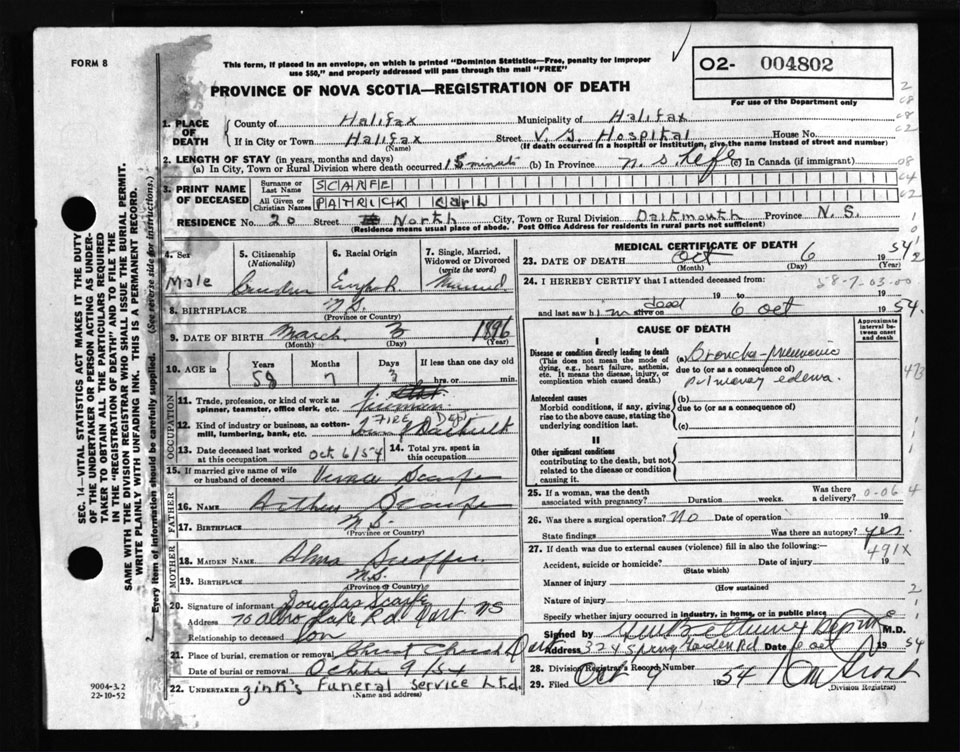 FORM 8
This form, if placed in an envelope, on which is printed "Dominion Statistics—Free, penalty for improper
use $50," and properly addressed will pass through the mail "FREE"
O2- 004802
For use of the Department only
PROVINCE OF NOVA SCOTIA—REGISTRATION OF DEATH
1. PLACE OF DEATH
County of Halifax Municipality of Halifax
If in City or Town Halifax Street V. G. Hospital House No.
(Name) (If death occurred in a hospital or institution, give the name instead of street and number)
2. LENGTH OF STAY (in years, months and days)
(a) In City, Town or Rural Division where death occurred 15 minutes (b) In Province N. S. Life (c) In Canada (if immigrant)
3. PRINT NAME OF DECEASED
Surname or Last Name SCARFE
All Given or Christian Names PATRICK Carl
RESIDENCE No. 20 Street North City, Town or Rural Division Dartmouth Province N. S.
(Residence means usual place of abode. Post Office Address for residents in rural parts not sufficient)
4. Sex
Male
5. Citizenship
(Nationality)
Canadian
6. Racial Origin
English
7. Single, Married,
Widowed or Divorced
(write the word)
Married
8. BIRTHPLACE N.S.
(Province or Country)
9. DATE OF BIRTH March 3 1896
(Month) (Day) (Year)
10. AGE in
Years Months Days If less than one day old
58 7 3 hrs. or min.
OCCUPATION
11. Trade, profession, or kind of work as
spinner, teamster, office clerk, etc. Fireman
12. Kind of industry or business, as cotton-
mill, lumbering, bank, etc. FIRE Dept.
13. Date deceased last worked
at this occupation Oct 6/54
14. Total yrs. spent in
this occupation
15. If married give name of wife
or husband of deceased Scarfe
FATHER
16. Name Arthur Scarfe
17. BIRTHPLACE N.S.
(Province or Country)
MOTHER
18. MAIDEN NAME Alma
19. BIRTHPLACE N.S.
(Province or Country)
20. Signature of informant Douglas Scarfe
Address Lake Rd Dart NS
Relationship to deceased Son
21. Place of burial, cremation or removal Christ Church Dart
Date of burial or removal October 9/54
22. UNDERTAKER Zink's Funeral Service Ltd.
(Name and address)
MEDICAL CERTIFICATE OF DEATH
23. DATE OF DEATH Oct 6 1954
(Month) (Day) (Year)
24. I HEREBY CERTIFY that I attended deceased from:
19 to 19
and last saw him alive on dead 6 Oct 1954.
58-7-03-00
CAUSE OF DEATH
Approximate
interval be-
tween onset
and death
I
Disease or condition directly leading to death
(This does not mean the mode of
dying, e.g., heart failure, asthenia,
etc. It means the disease, injury, or
complication which caused death.
(a) Broncho-pneumonia
due to (or as a consequence of)
pulmonary edema.
Antecedent causes
Morbid conditions, if any, giving
rise to the above cause, stating the
underlying condition last.
(b)
due to (or as a consequence of)
(c)
II
Other significant conditions
contributing to the death, but not
related to the disease or condition
causing it.
25. If a woman, was the death
associated with pregnancy? Duration weeks. Was there
a delivery?
0-06 4
26. Was there a surgical operation? No Date of operation 19
State findings Was there an autopsy? yes
27. If death was due to external causes (violence) fill in also the following:—
491X
Accident, suicide or homicide? Date of injury 19
(State which)
Manner of injury
(How sustained
Nature of injury
Specify whether injury occurred in industry, in home, or in public place
Signed by M.D.
Address 324 Spring Garden Rd Date 6 Oct 1954
28. Division Registrar's Record Number
29. Filed Oct 9 1954
(Division Registrar)
SEC. 14—VITAL STATISTICS ACT MAKES IT THE DUTY
OF THE UNDERTAKER OR PERSON ACTING AS UNDER-
TAKER TO OBTAIN ALL THE PARTICULARS REQUIRED
IN THE "REGISTRATION OF DEATH" AND TO FILE THE
SAME WITH THE DIVISION REGISTRAR WHO SHALL ISSUE THE BURIAL PERMIT.
WRITE PLAINLY WITH UNFADING INK. THIS IS A PERMANENT RECORD.
Every item of information should be carefully supplied. (See reverse side for instructions.)
9004-3.2
22-10-52